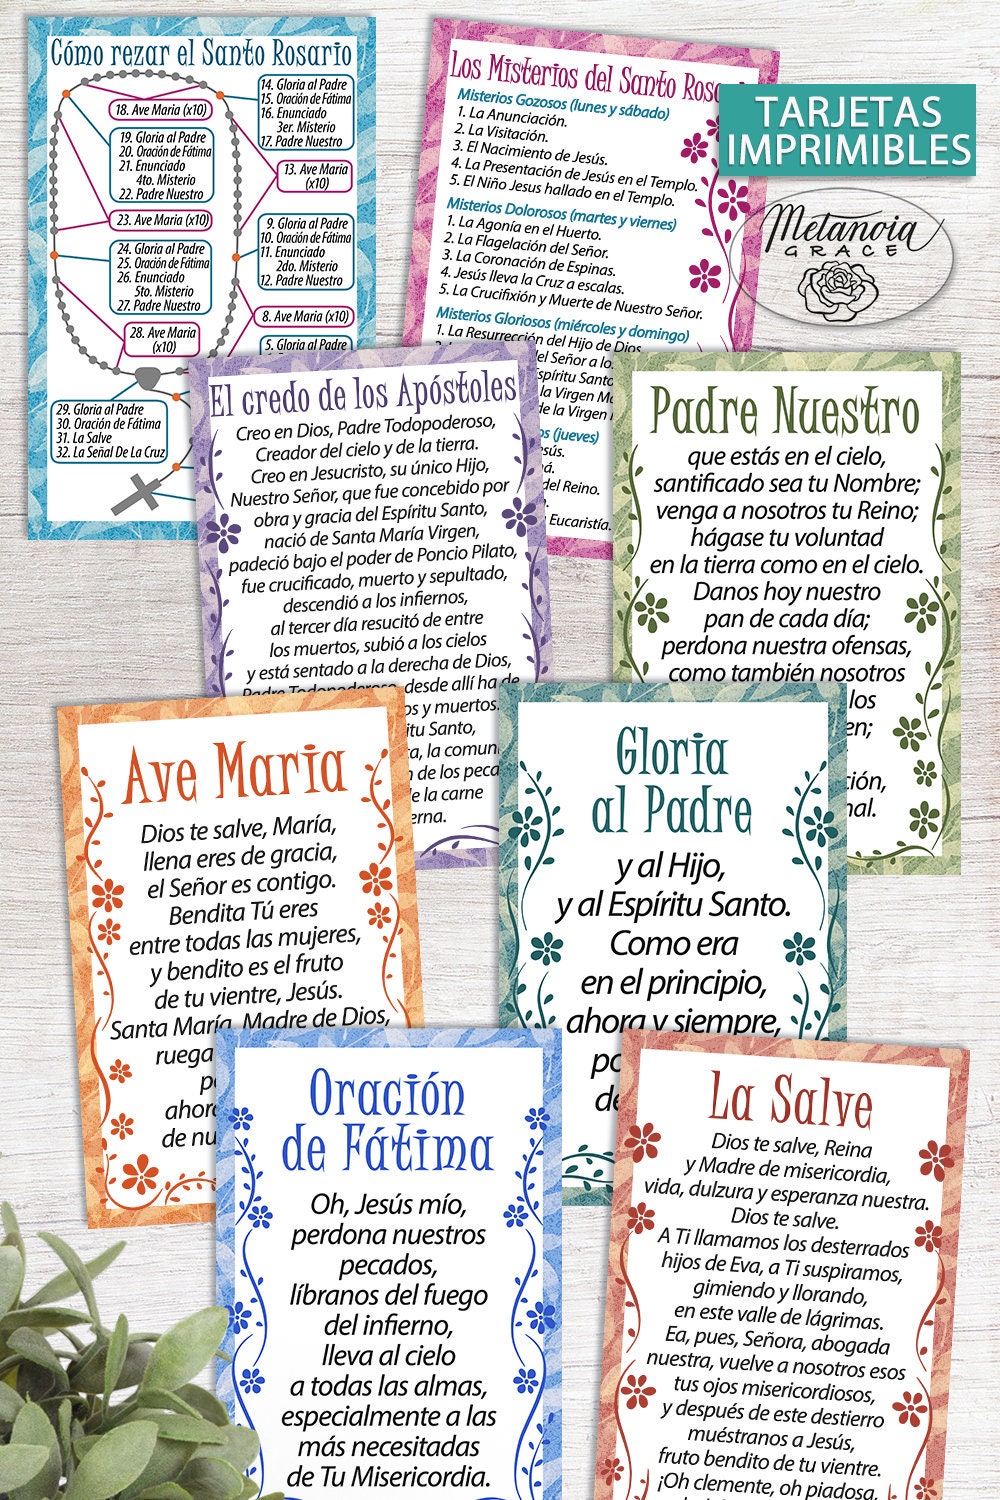 Cómo rezar el Santo Rosario
14. Gloria al Padre
15. Oración de Fátima
16. Enunciado
3er. Misterio
17. Padre Nuestro
18. Ave Maria (x10)
19. Gloria al Padre
20. Oración de Fátima
21. Enunciado
4to. Misterio
22. Padre Nuestro
13. Ave Maria
(x10)
23. Ave Maria (x10)
9. Gloria al Padre
10. Oración de Fátima
11. Enunciado
2do. Misterio
12. Padre Nuestro
24. Gloria al Padre
25. Oración de Fátima
26. Enunciado
5to. Misterio
27. Padre Nuestro
8. Ave Maria (x10)
28. Ave Maria
(x10)
5. Gloria al Padre
29. Gloria al Padre
30. Oración de Fátima
31. La Salve
32. La Señal De La Cruz
Los Misterios del Santo
Misterios Gozosos (lunes y sábado)
1. La Anunciación.
2. La Visitación.
3. El Nacimiento de Jesús.
4. La Presentación de Jesús en el Templo.
5. El Niño Jesus hallado en el Templo.
Misterios Dolorosos (martes y viernes)
1. La Agonía en el Huerto.
2. La Flagelación del Señor.
3. La Coronación de Espinas.
4. Jesús lleva la Cruz a escalas.
5. La Crucifixión y Muerte de Nuestro Señor.
Misterios Gloriosos (miércoles y domingo)
1. La Resurrección del Hijo de Dios
del Señor a los
la Virgen
de la Virgen
(jueves)
del Reino.
Eucaristía.
TARJETAS
IMPRIMIBLES
Metanoia
GRACE
El credo de los Apóstoles
Creo en Dios, Padre Todopoderoso,
Creador del cielo y de la tierra.
Creo en Jesucristo, su único Hijo,
Nuestro Señor, que fue concebido por
obra y gracia del Espíritu Santo,
nació de Santa María Virgen,
padeció bajo el poder de Poncio Pilato,
fue crucificado, muerto y sepultado,
descendió a los infiernos,
al tercer día resucitó de entre
los muertos, subió a los cielos
y está sentado a la derecha de Dios,
Padre Todopoderoso, desde allí ha de
y muertos.
Santo,
la
de los
de la carne
Padre Nuestro
que estás en el cielo,
santificado sea tu Nombre;
venga a nosotros tu Reino;
hágase tu voluntad
en la tierra como en el cielo.
Danos hoy nuestro
pan de cada día;
perdona nuestra ofensas,
como también nosotros
los
Ave Maria
Dios te salve, María,
llena eres de gracia,
el Señor es contigo.
Bendita Tú eres
entre todas las mujeres,
y bendito es el fruto
de tu vientre, Jesús.
Santa María, Madre de Dios,
ruega
de
Gloria
al Padre
y al Hijo,
y al Espíritu Santo.
Como era
en el principio,
ahora y siempre,
Oración
de Fátima
Oh, Jesús mío,
perdona nuestros
pecados,
líbranos del fuego
del infierno,
lleva al cielo
a todas las almas,
especialmente a las
más necesitadas
de Tu Misericordia.
La Salve
Dios te salve, Reina
y Madre de misericordia,
vida, dulzura y esperanza nuestra.
Dios te salve.
A Ti llamamos los desterrados
hijos de Eva, a Ti suspiramos,
gimiendo y llorando,
en este valle de lágrimas.
Ea, pues, Señora, abogada
nuestra, vuelve a nosotros esos
tus ojos misericordiosos,
y después de este destierro
muéstranos a Jesús,
fruto bendito de tu vientre.
¡Oh clemente, oh piadosa,